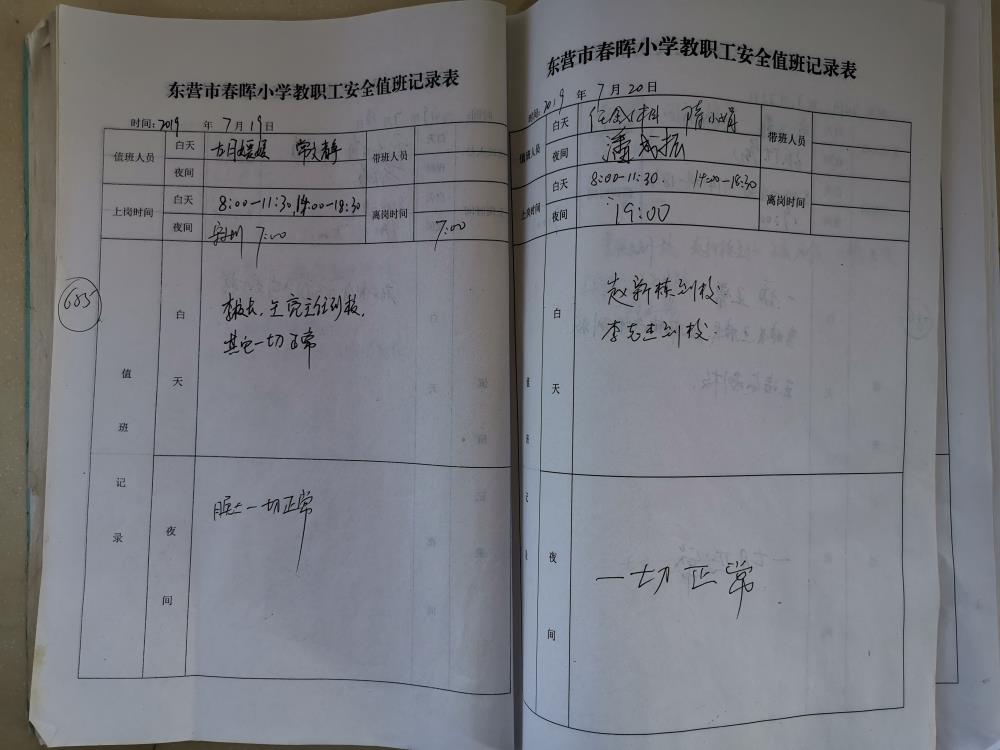 东营市春晖小学教职工安全值班记录表
时间: 2019 年 7 月 19 日
值班人员 白天 胡媛媛 常文静 带班人员 白天
夜间
上岗时间 白天 8:00-11:30, 14:00-18:30 离岗时间
夜间 7:00 7:00
685
值班记录 白天
李校长, 主任到校,
其它一切正常
夜间
晚上一切正常
东营市春晖小学教职工安全值班记录表
时间: 2019 年 7 月 20 日
值班人员 白天 隋小娟 带班人员
夜间 潘成振
上岗时间 白天 8:00-11:30. 14:00-18:30 离岗时间
夜间 19:00
值班记录 白天
赵新栋到校
李志杰到校
夜间
一切正常